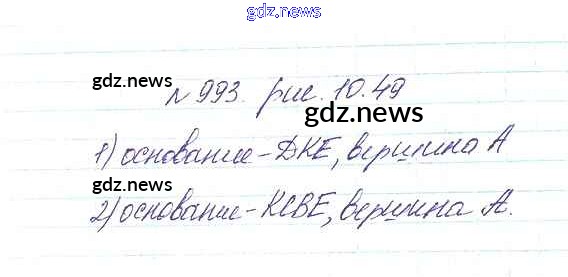 gdz.news
gdz.news
№993. рис. 10.49
gdz.news
1) основание - ДКЕ, вершина А
gdz.news
2) основание - КСВЕ, вершина А.